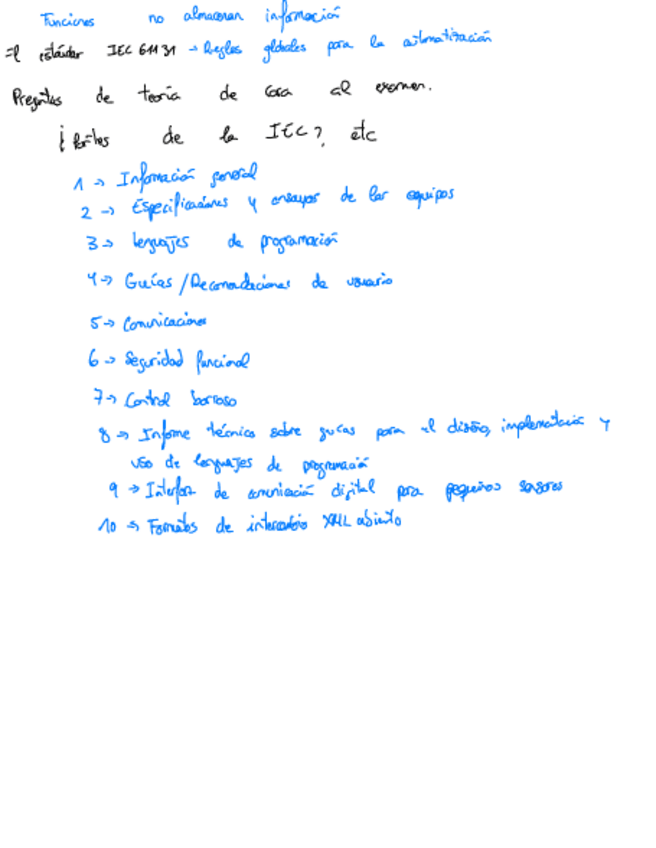 Funciones no almacenan información
El estándar IEC 61131 → Reglas globales para la automatización
Preguntas de teoría de cara al examen.
¿Partes de la IEC?, etc
1 → Información general
2 → Especificaciones y ensayos de los equipos
3 → lenguajes de programación
4 → Guías / Recomendaciones de usuario
5 → Comunicaciones
6 → Seguridad funcional
7 → Control borroso
8 → Informe técnico sobre guías para el diseño, implementación y
uso de lenguajes de programación
9 → Interfaz de comunicación digital para pequeños sensores
10 → Formatos de intercambio XML abierto